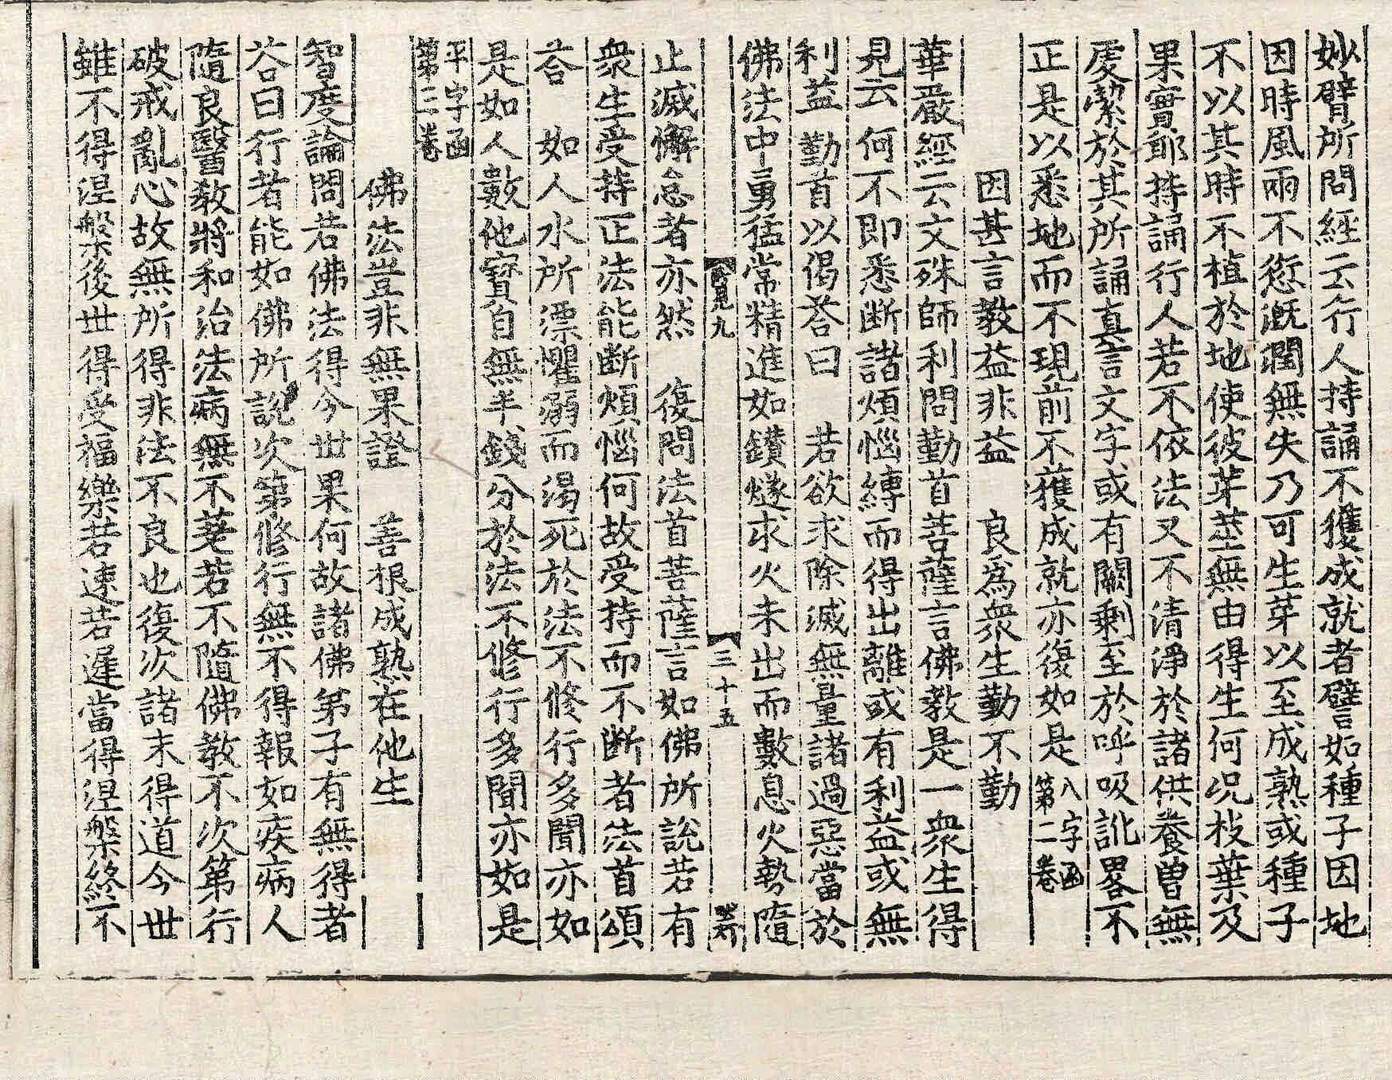 妙臂所問經云行人持誦不獲成就者譬如種子因地
因時風雨不愆漑潤無失乃可生芽以至成熟或種子
不以其時不植於地使彼芽莖無由得生何况枝葉及
果實耶持誦行人若不依法又不清淨於諸供養曾無
處繁於其所誦真言文字或有闕剩至於呼吸訛畧不
正是以悉地而不現前不獲成就亦復如是 八字函
第二卷
因甚言教益非益 良為衆生勤不勤
華嚴經云文殊師利問勤首菩薩言佛教是一衆生得
見云何不即悉断諸煩惱縛而得出離或有利益或無
利益 勤首以偈荅曰 若欲求除滅無量諸過惡當於
佛法中勇猛常精進如鑚燧求火未出而數息火勢隨
見九
三十五
止滅懈怠者亦然 復問法首菩薩言如佛所說若有
衆生受持正法能断煩惱何故受持而不断者法首頌
荅 如人水所漂懼溺而渴死於法不修行多聞亦如
是如人數他寳自無半錢分於法不修行多聞亦如是
平字函
第三卷
佛法豈非無果證 善根成熟在他生
智度論問若佛法得今丗果何故諸佛弟子有無得者
荅曰行者能如佛所說次第修行無不得報如疾病人
隨良醫教將和治法病無不差若不隨佛教不次第行
破戒亂心故無所得非法不良也復次諸未得道今丗
雖不得涅槃後丗得受福樂若速若遲當得涅槃終不